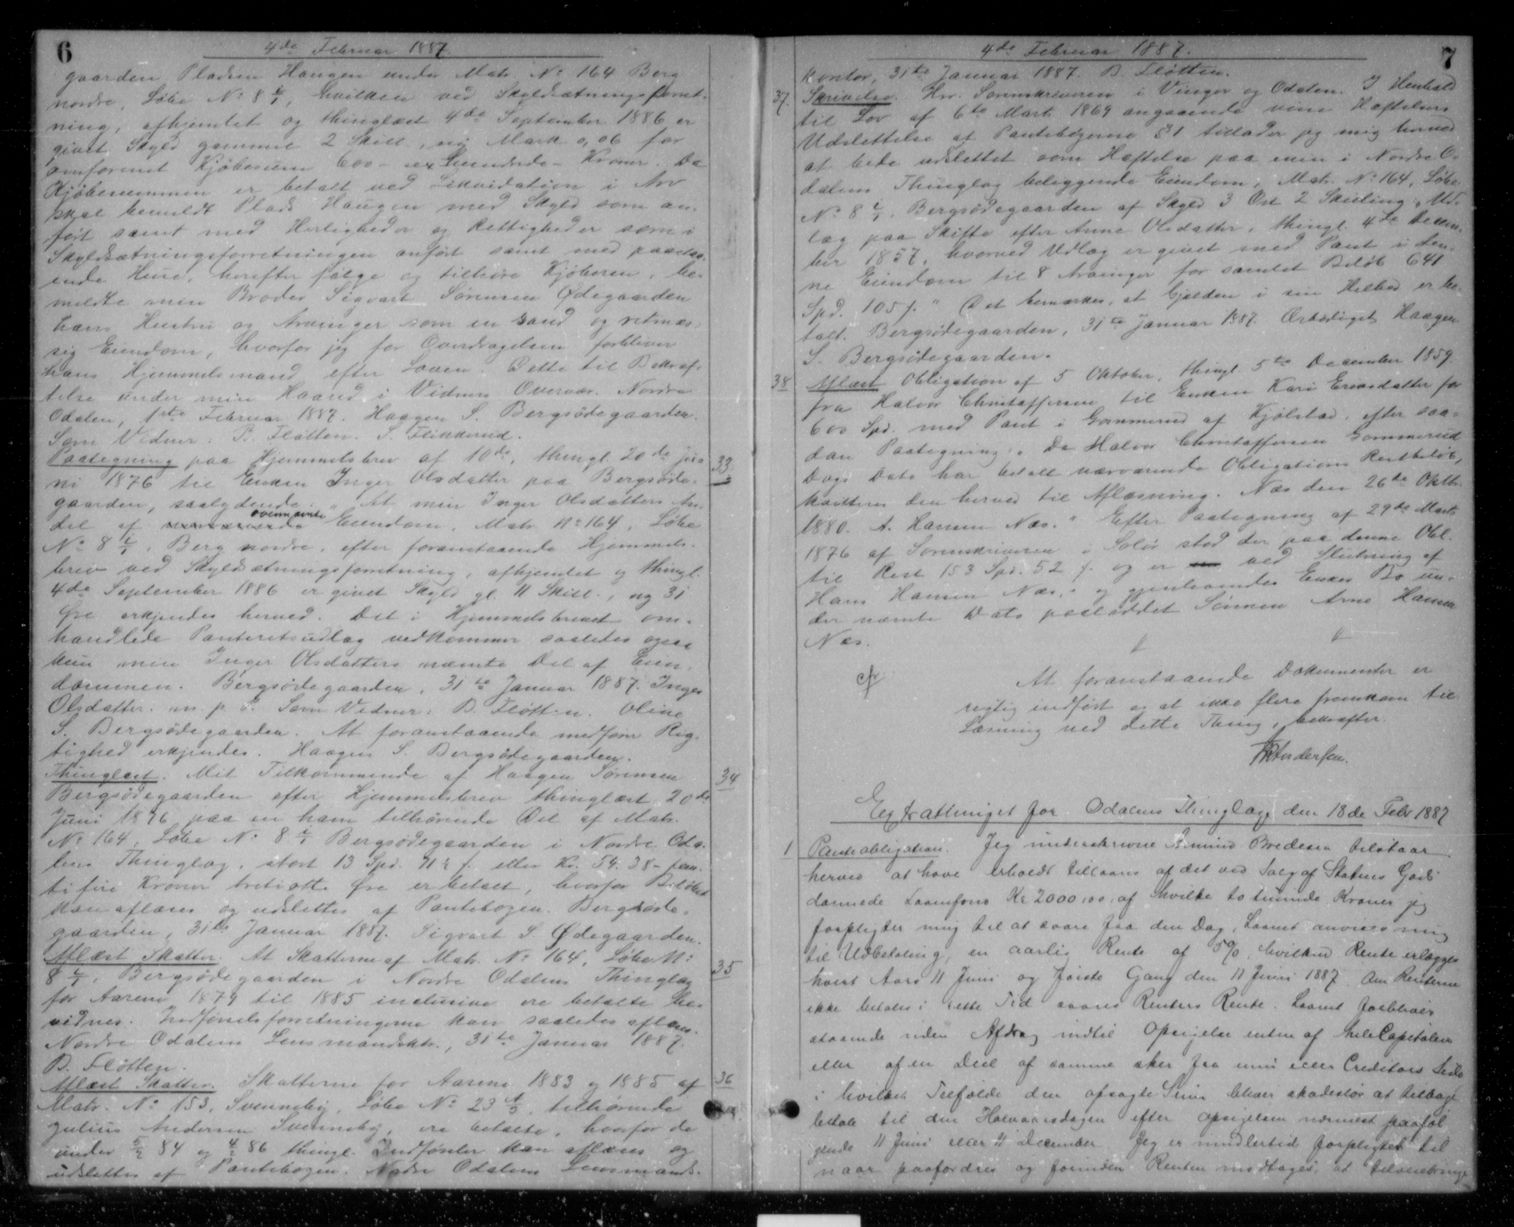 6
4de Februar 1887.
gaarden Pladsen Haugen under Matr. No 164 Berg
nordre, Løbe No 8 , hvilken ved Skyldsætningsforret-
ning, afhjemlet og thinglæst 4de September 1886 er
givet Skyld gammel 2 Skill., ny Mark 0,06 for
omforenet Kjøbesum 600 - sex hundrede - Kroner. Da
Kjøbesummen er betalt ved Likvidation i Arv
skal bemeldte Plads Haugen med Skyld som an-
ført samt med Herligheder og Rettigheder som i
Skyldsætningsforretningen anført samt med paastaa-
ende Huse, herefter følge og tilhøre Kjøberen, be-
meldte min Broder Sigvart Sørensen Ødegaarden
hans Hustru og Arvinger som en sand og retmæs-
sig Eiendom, hvorfor jeg for Overdragelsen forbliver
hans Hjemmelsmand efter Loven. Dette til Bekræf-
telse under min Haand i Vidners Overvær. Nordre
Odalen, 1ste Februar 1887. Haagen S. Bergsødegaarden.
Som Vidner: B. Fløtten. S. Flikkerud.
33 Paategning paa Hjemmelsbrev af 10de, thingl. 20de Ju-
ni 1876 til Enken Inger Olsdatter paa Bergsøde-
gaarden, saalydende: "At min Inger Olsdatters An-
del af ovennævnte Eiendom, Matr. No 164, Løbe
No 8 , Berg nordre, efter foranstaaende Hjemmels-
brev ved Skyldsætningsforretning, afhjemlet og thingl.
4de September 1886 er givet Skyld gl. 11 Skill., ny 31
Øre erkjendes herved. Det i Hjemmelsbrevet om-
handlede Panteretudlæg vedkommer saaledes ogsaa
kun min Inger Olsdatters nævnte Del af Eien-
dommen. Bergsødegaarden, 31te Januar 1887. Inger
Olsdatter. m. p. P. Som Vidner: B. Fløtten. Oline
S. Bergsødegaarden. At foranstaaende medfører Rig-
tighed erkjendes. Haagen S. Bergsødegaarden.
34 Thinglæst. Mit Tilkommende af Haagen Sørensen
Bergsødegaarden efter Hjemmelsbrev thinglæst 20de
Juni 1876 paa en ham tilhørende Del af Matr.
No 164, Løbe No 8 Bergsødegaarden i Nordre Oda-
lens Thinglag, stort 13 Spd. 71 eller Kr. 54.38 - fem-
ti fire Kroner tretiotte Øre er betalt, hvorfor Beløbet
kan aflæses og udslettes af Pantebogen. Bergsøde-
gaarden, 31te Januar 1887. Sigvart S. Ødegaarden.
35 Aflæst Skatter. At Skatterne af Matr. No 164, Løbe No
8 , Bergsødegaarden i Nordre Odalens Thinglag
for Aarene 1879 til 1885 inclusive ere betalte be-
vidnes. Indførselsforretningerne kan saaledes aflæses.
Nordre Odalens Lensmandsktr., 31te Januar 1887.
B. Fløtten.
36 Aflæst Skatter. Skatterne for Aarene 1883 og 1885 af
Matr. No 153, Svenneby, Løbe No 23 , tilhørende
Julius Andersen Svenneby, ere betalte, hvorfor de
under 84 og 86 thingl. Indførsler kan aflæses og
udslettes af Pantebogen. Nordre Odalens Lensmands-
4de Februar 1887.
7
kontor, 31te Januar 1887. B. Fløtten.
37 Skrivelse. Hr. Sorenskriveren i Vinger og Odalen. I Henhold
til Lov af 6te Marts 1869 angaaende visse Hæftelsers
Udslettelse af Pantebøgerne § 1 tillader jeg mig herved
at bede udslettet som Hæftelse paa min i Nordre O-
dalens Thinglag beliggende Eiendom, Matr. No 164, Løbe
No 8 , Bergsødegaarden af Skyld 3 Ort 2 Skilling, Ud-
læg paa Skifte efter Anne Olsdatter, thingl. 4de Decem-
ber 1857, hvorved Udlæg er givet med Pant i den-
ne Eiendom til 8 Arvinger for samlet Beløb 641
Spd. 105 . " Det bemærkes, at Gjælden i sin Helhed er be-
talt. Bergsødegaarden, 31te Januar 1887. Ærbødigst Haagen
S. Bergsødegaarden.
38 Aflæst Obligation af 5 Oktober, thingl. 5te December 1859
fra Halvor Christoffersen til Enken Kari Eriksdatter for
600 Spd. med Pant i Gommerud af Kjølstad, efter saa-
dan Paategning: "Da Halvor Christoffersen Gommerud
Dags Dato har betalt nærværende Obligations Restbeløb,
kvitteres den herved til Aflæsning. Næs den 26de Oktbr.
1880. A. Hansen Næs." Efter Paategning af 29de Marts
1876 af Sorenskriveren i Solør stod der paa denne Obl.
til Rest 153 Spd. 52 . og er ved Slutning af
Hans Hansen Næs, og gjenlevendes Enkes Bo un-
der nævnte Dato udloddet Sønnen Arne Hansen
Næs.
At foranstaaende Dokumenter er
rigtig indført og at ikke flere fremkom til
Læsning ved dette Thing, bekræfter.
Andersen.
Extrathinget for Odalens Thinglag den 18de Febr 1887
1 Panteobligation. Jeg underskrevne Amund Bredesen tilstaar
herved at have erholdt tillaans af det ved Salg af Statens Gods
dannede Laanefond Kr 2000,00, af hvilke to tusinde Kroner jeg
forpligter mig til at svare fra den Dag, Laanet anvises mig
til Udbetaling, en aarlig Rente af 5%, hvilken Rente erlægges
hvert Aars 11 Juni og første Gang den 11 Juni 1887. Om Renterne
ikke betales i rette Tid svares Renters Rente. Laanet forbliver
staaende uden Afdrag indtil Opsigelse enten af hele Capitalen
eller af en Deel af samme sker fra min eller Creditors Side
i hvilket Tilfælde den opsagte Sum bliver skadesløs at tilbage
betale til den Halvaarsdagen efter Opsigelsen nærmest paaføl
gende 11 Juni eller 11 December. Jeg er imidlertid forpligtet til
naar paafordres og forinden Renten modtages, at tilveiebringe